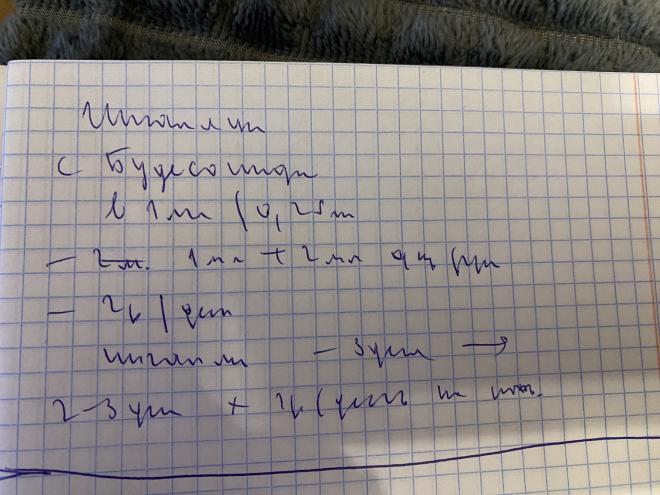 Ингаляции
с Будесонидом
в 1 мл (0,25 м
- 2 м. 1 мл + 2 мл физ р-ра
- 2р/день
ингаляции - 3 дня →
2-3 дня + 2р/день